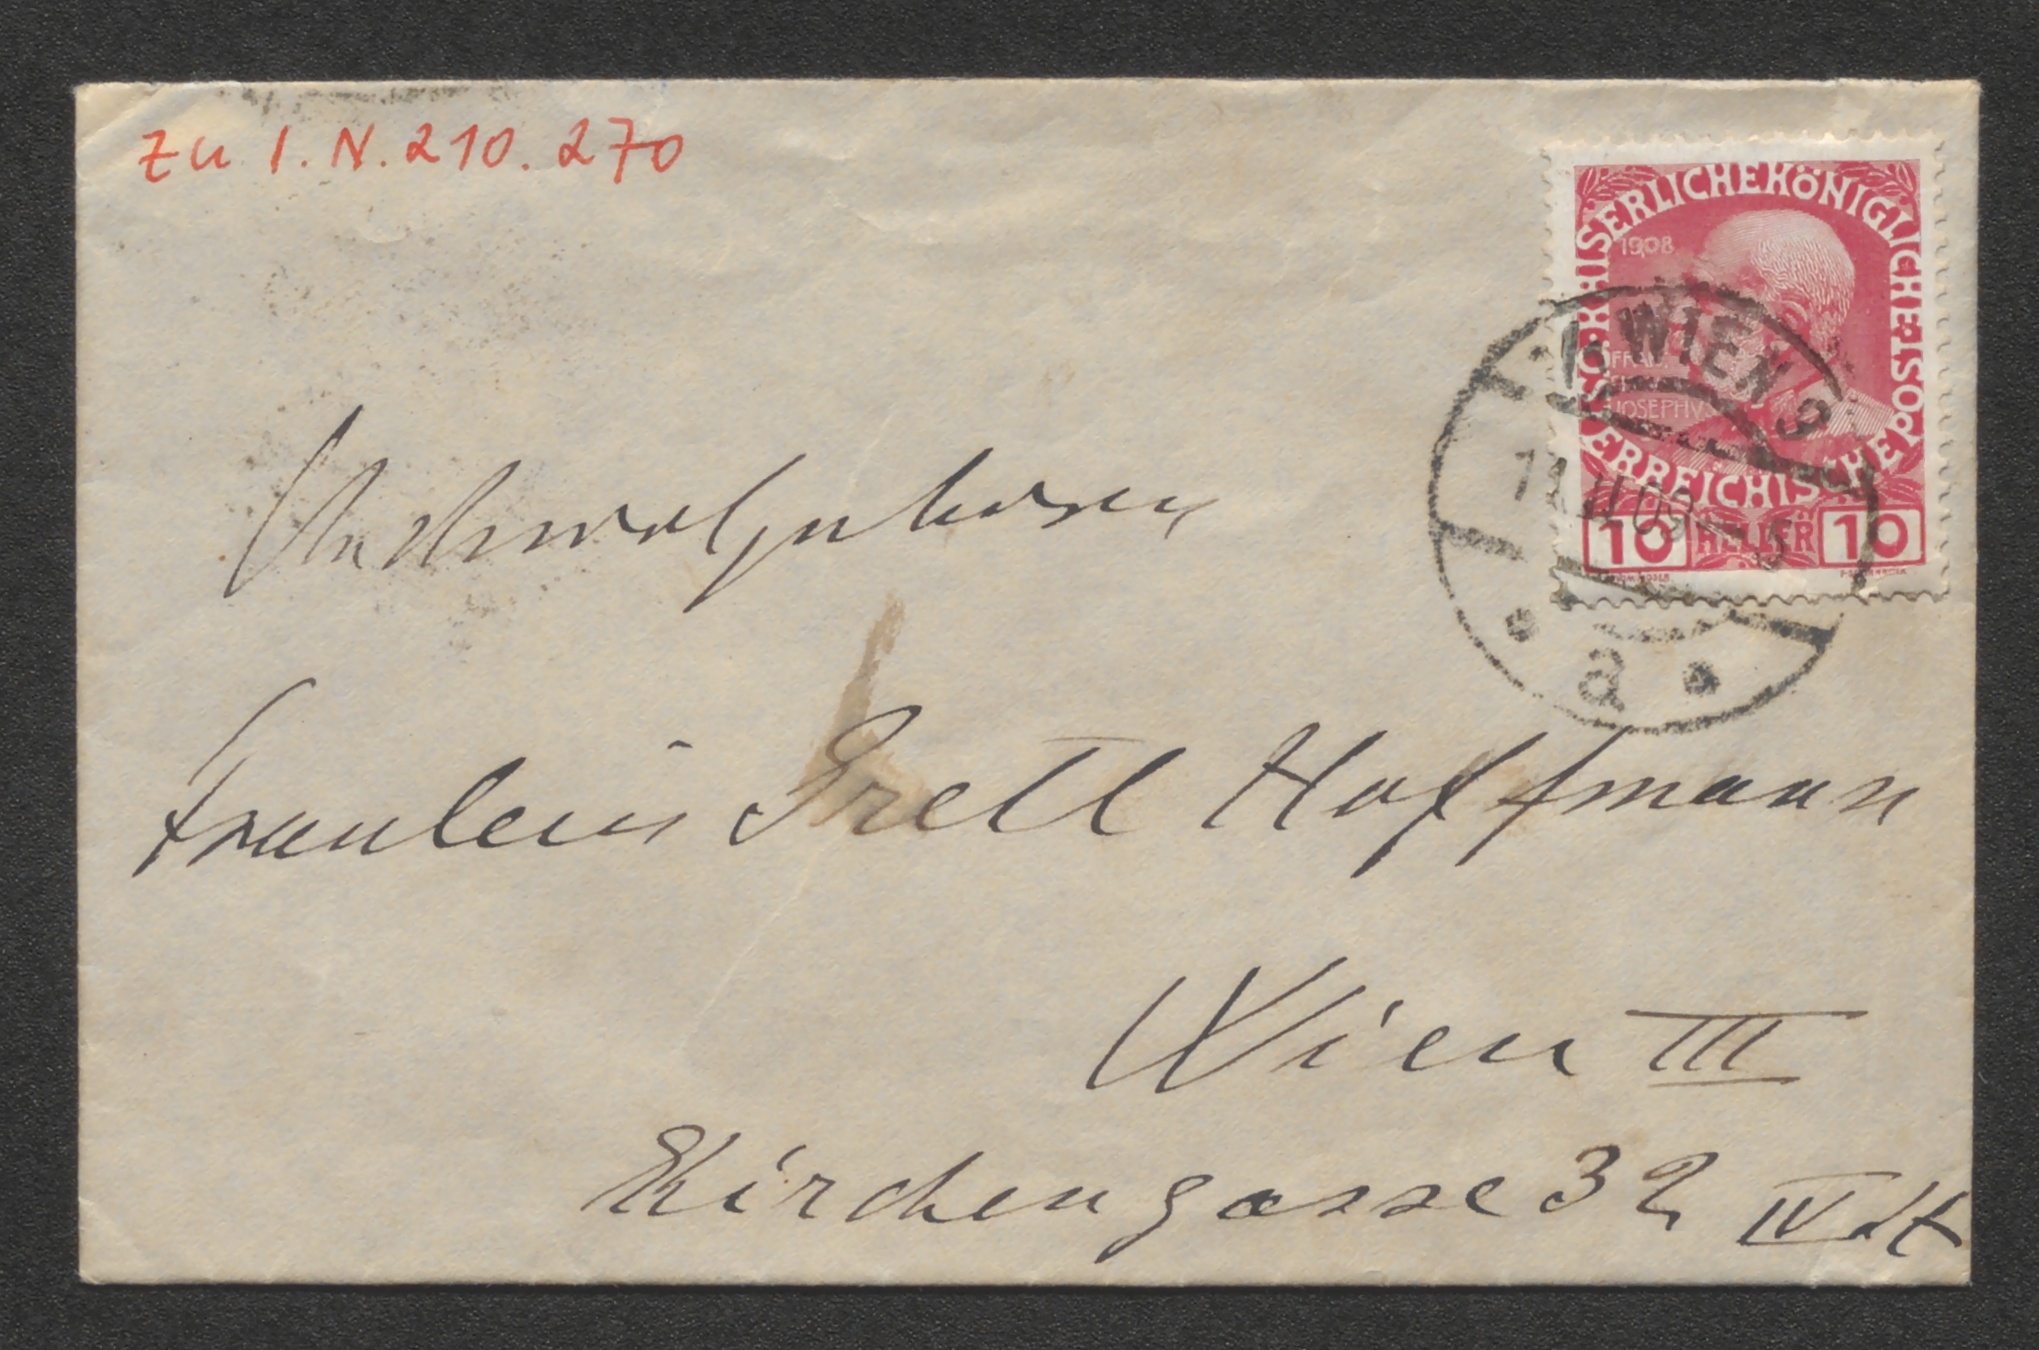 zu I.N. 210.270
KAISERLICHE KÖNIGLICHE ÖSTERREICHISCHE POST
1908
FRANC
JOSEPHVS
10 HELLER 10
WIEN 9
11.II 09
a
Hochwohlgeboren
Fraulein Gretl Hoffmann
Wien III
Kirchengasse 32 IV St